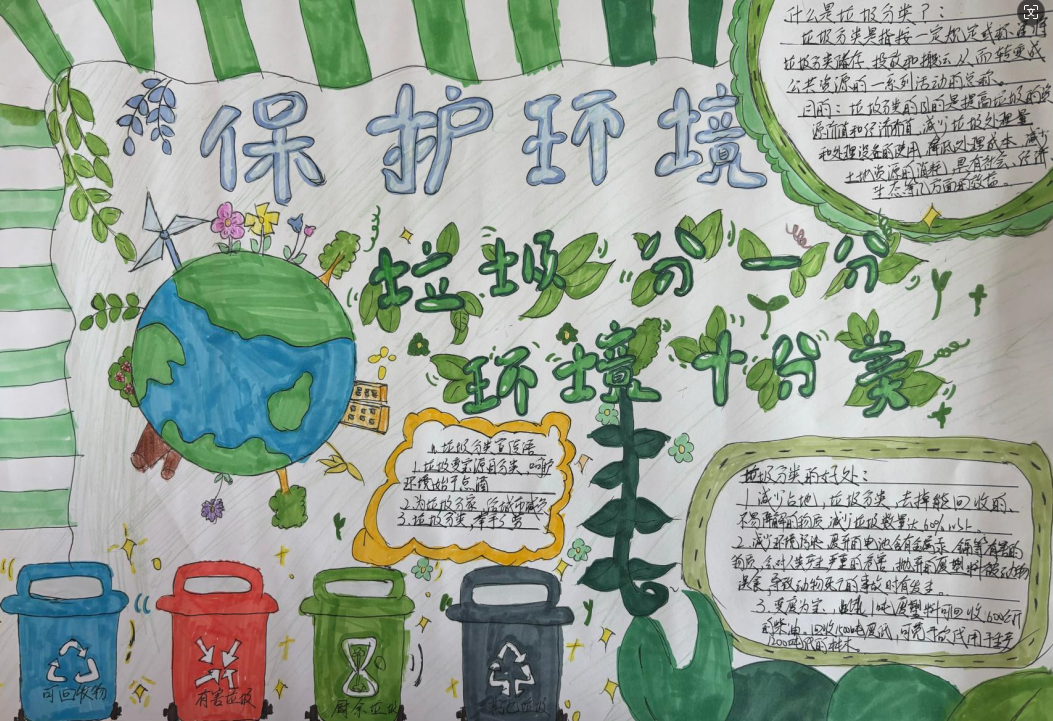 保护环境
垃圾分一分
环境十分美
什么是垃圾分类?:
垃圾分类是指按一定规定或标准将
垃圾分类储存、投放和搬运,从而转变成
公共资源的一系列活动的总称。
目的:垃圾分类的目的是提高垃圾的资
源价值和经济价值,减少垃圾处理量
和处理设备的使用,降低处理成本,减少
土地资源的消耗,具有社会、经济
生态等几方面的效益。
垃圾分类宣传语
1.垃圾变宝源用分类,呵护
环境始于点滴
2.为垃圾分家,
3.垃圾分类,举手之劳
垃圾分类的好处:
1.减少占地,垃圾分类,去掉能回收的、
不易降解的物质,减少垃圾数量达60%以上
2.减少环境污染,废弃的电池含有金属汞、镉等有毒的
物质,会对人类产生严重的危害,抛弃的废塑料被动物
误食,导致动物死亡的事故时有发生。
3.变废为宝,1吨废塑料可回收600公斤
的柴油。回收1500吨废纸,可免于砍伐用于生产
1200吨纸的林木。
可回收物
有害垃圾
厨余垃圾
其他垃圾